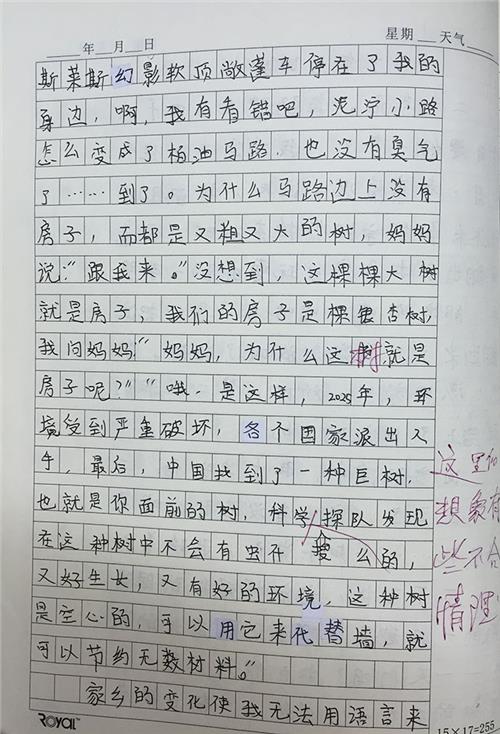 年 月 日 星期 天气
斯莱斯幻影软顶敞蓬车停在了我的
身边，啊，我有看错吧，泥泞小路
怎么变成了柏油马路，也没有臭气
了……到了。为什么马路边上没有
房子，而都是又粗又大的树，妈妈
说：“跟我来。”没想到，这棵棵大树
就是房子，我们的房子是棵银杏树，
我问妈妈：“妈妈，为什么这树就是
房子呢？”“哦，是这样，2025年，环
境受到严重破坏，各个国家派出人
手，最后，中国找到了一种巨树，
也就是你面前的树，科学探队发现
在这种树中不会有虫什么的，
又好生长，又有好的环境，这种树
是空心的，可以用它来代替墙，就
可以节约无数材料。”
家乡的变化使我无法用语言来
这里的
想象有
些不合
情理
ROYAL
15×17=255